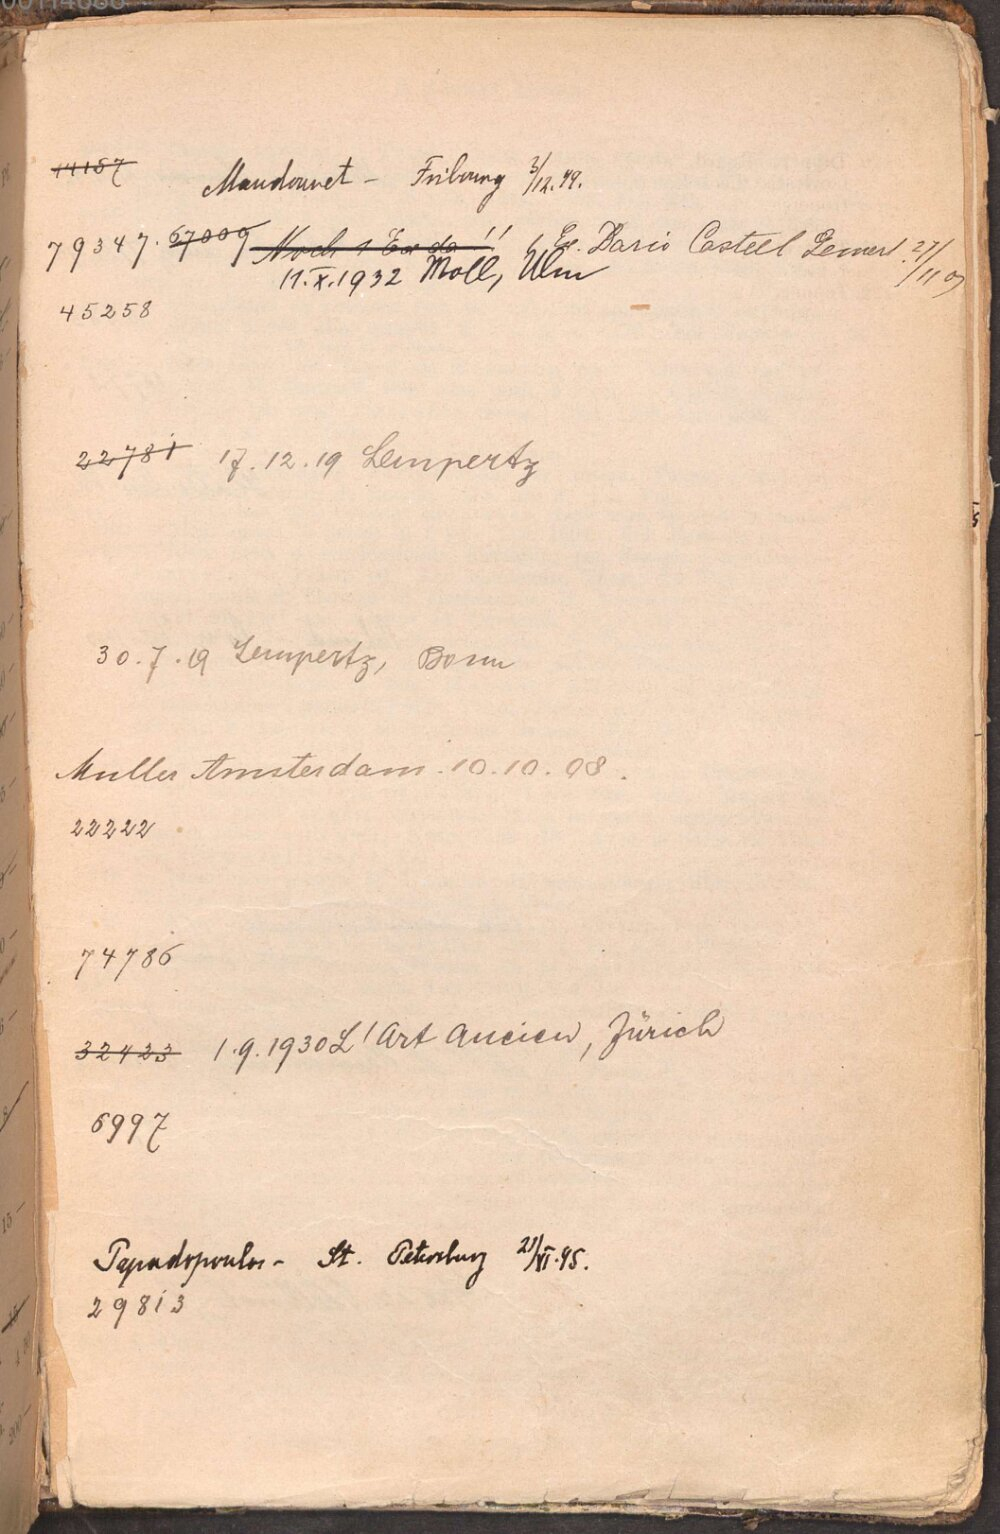 14157
Mandonnet - Fribourg 3/12.99.
79347. 67009 Noch 1 Ex da!! Ex. Dario Casteel 27/11 07
11.X.1932 Moll, Ulm
45258
22781 17.12.19 Lempertz
30.7.19 Lempertz, Bonn
Muller Amsterdam. 10.10.08.
22222
74786
32423 1.9.1930 L'Art Ancien, Zürich
6997
Papadopoulos - St. Petersburg 21/VI.95.
29813